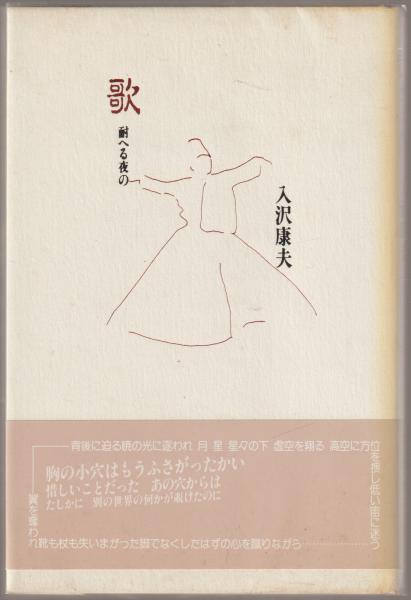 歌
耐へる夜の
入沢康夫
背後に迫る暁の光に逐われ 月 星 星々の下 虚空を翔る 高空に方位
を押し低い宙に迷う
胸の小穴はもうふさがったかい
惜しいことだった あの穴からは
たしかに 別の世界の何かが覗けたのに
翼を奪われ
靴も杖も失いまがった脚でなくしたはずの心を蹴りながら